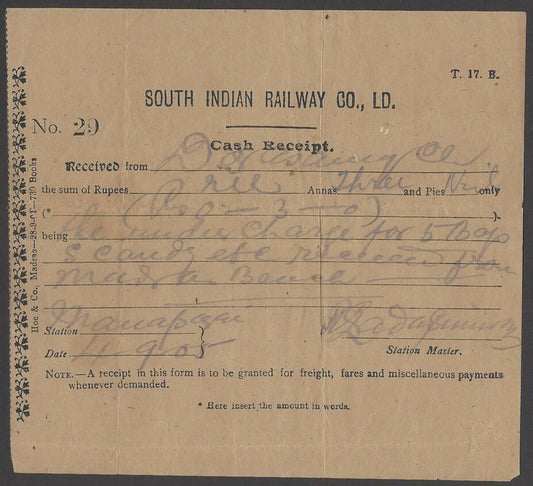 T. 17. B.
SOUTH INDIAN RAILWAY CO., LD.
No. 29
Cash Receipt.
Received from
the sum of Rupees Annas Three and Pies Nil only
(* (Rs 0 - 3 - 0) ).
being the under charge for 5 Bags
from
Station
Date 4 9 05
Station Master.
NOTE.—A receipt in this form is to be granted for freight, fares and miscellaneous payments
whenever demanded.
* Here insert the amount in words.
Hoe & Co., Madras—28-9-01—730 Books